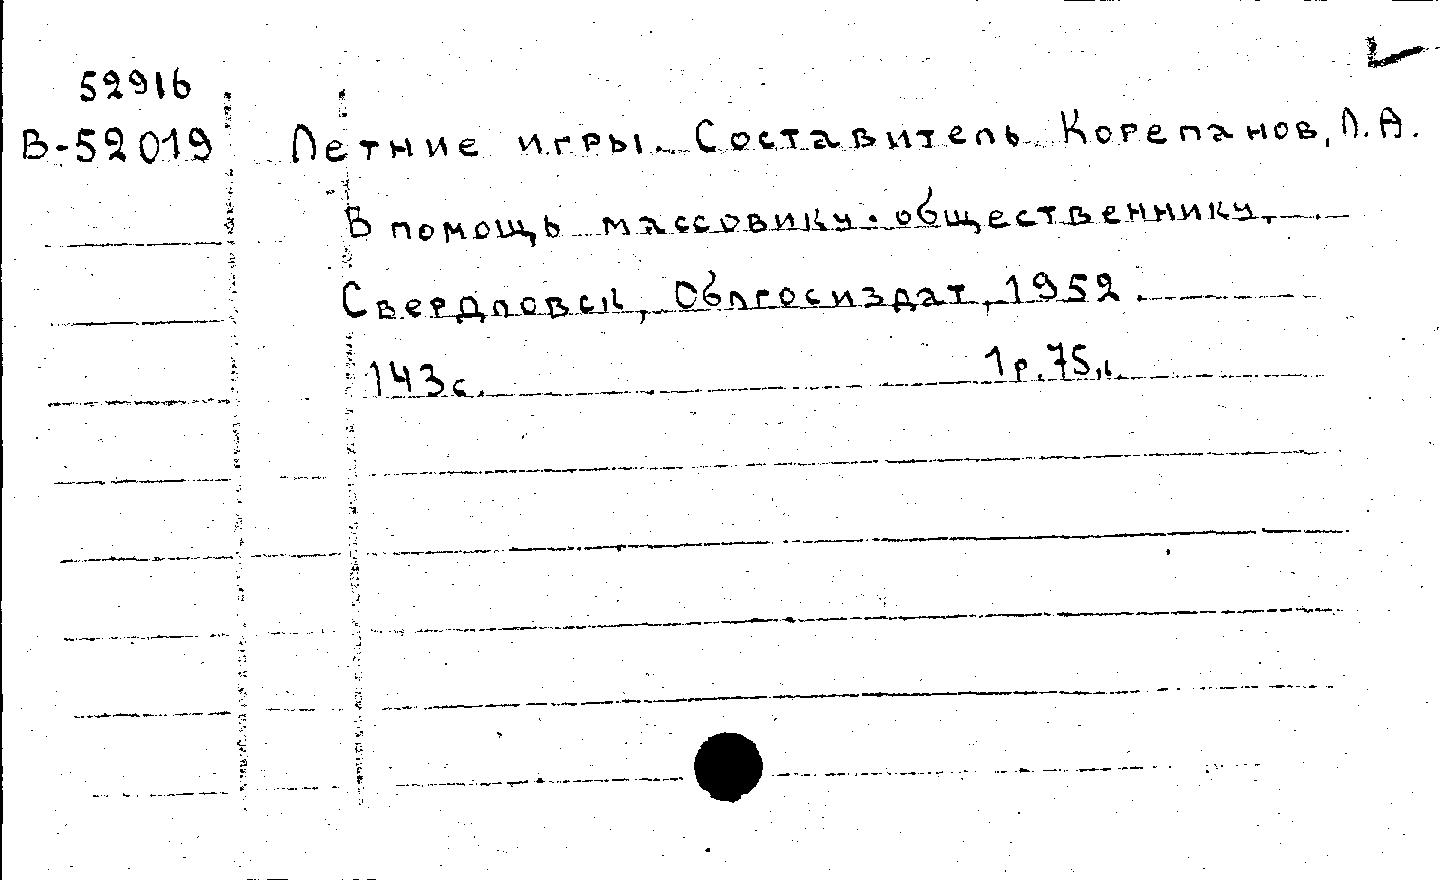 52916
В-52019 Летние игры. Составитель Корепанов, Л.А.
В помощь массовику-общественнику.
Свердловск, Облгосиздат, 1952.
143с. 1р.75к.